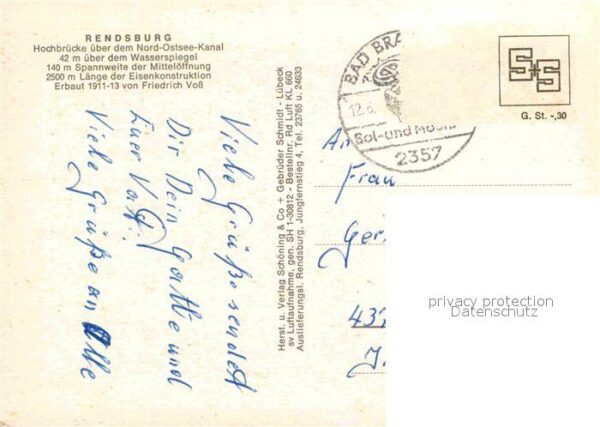 RENDSBURG
Hochbrücke über dem Nord-Ostsee-Kanal
42 m über dem Wasserspiegel
140 m Spannweite der Mittelöffnung
2500 m Länge der Eisenkonstruktion
Erbaut 1911-13 von Friedrich Voß
Viele Grüße sendet
Dir Dein Gatte und
Euer Vati.
Viele Grüße an Alle
Herst. u. Verlag Schöning & Co + Gebrüder Schmidt - Lübeck
sv Luftaufnahme, gen. SH 1-30812 - Bestellnr. Rd Luft KL 660
Auslieferungsl. Rendsburg, Jungfernstieg 4, Tel. 23765 u. 24633
BAD BRA
12.6.
Sol- und Moor
2357
S+S
G. St. -,30
An
Frau
Ger
437
privacy protection
Datenschutz